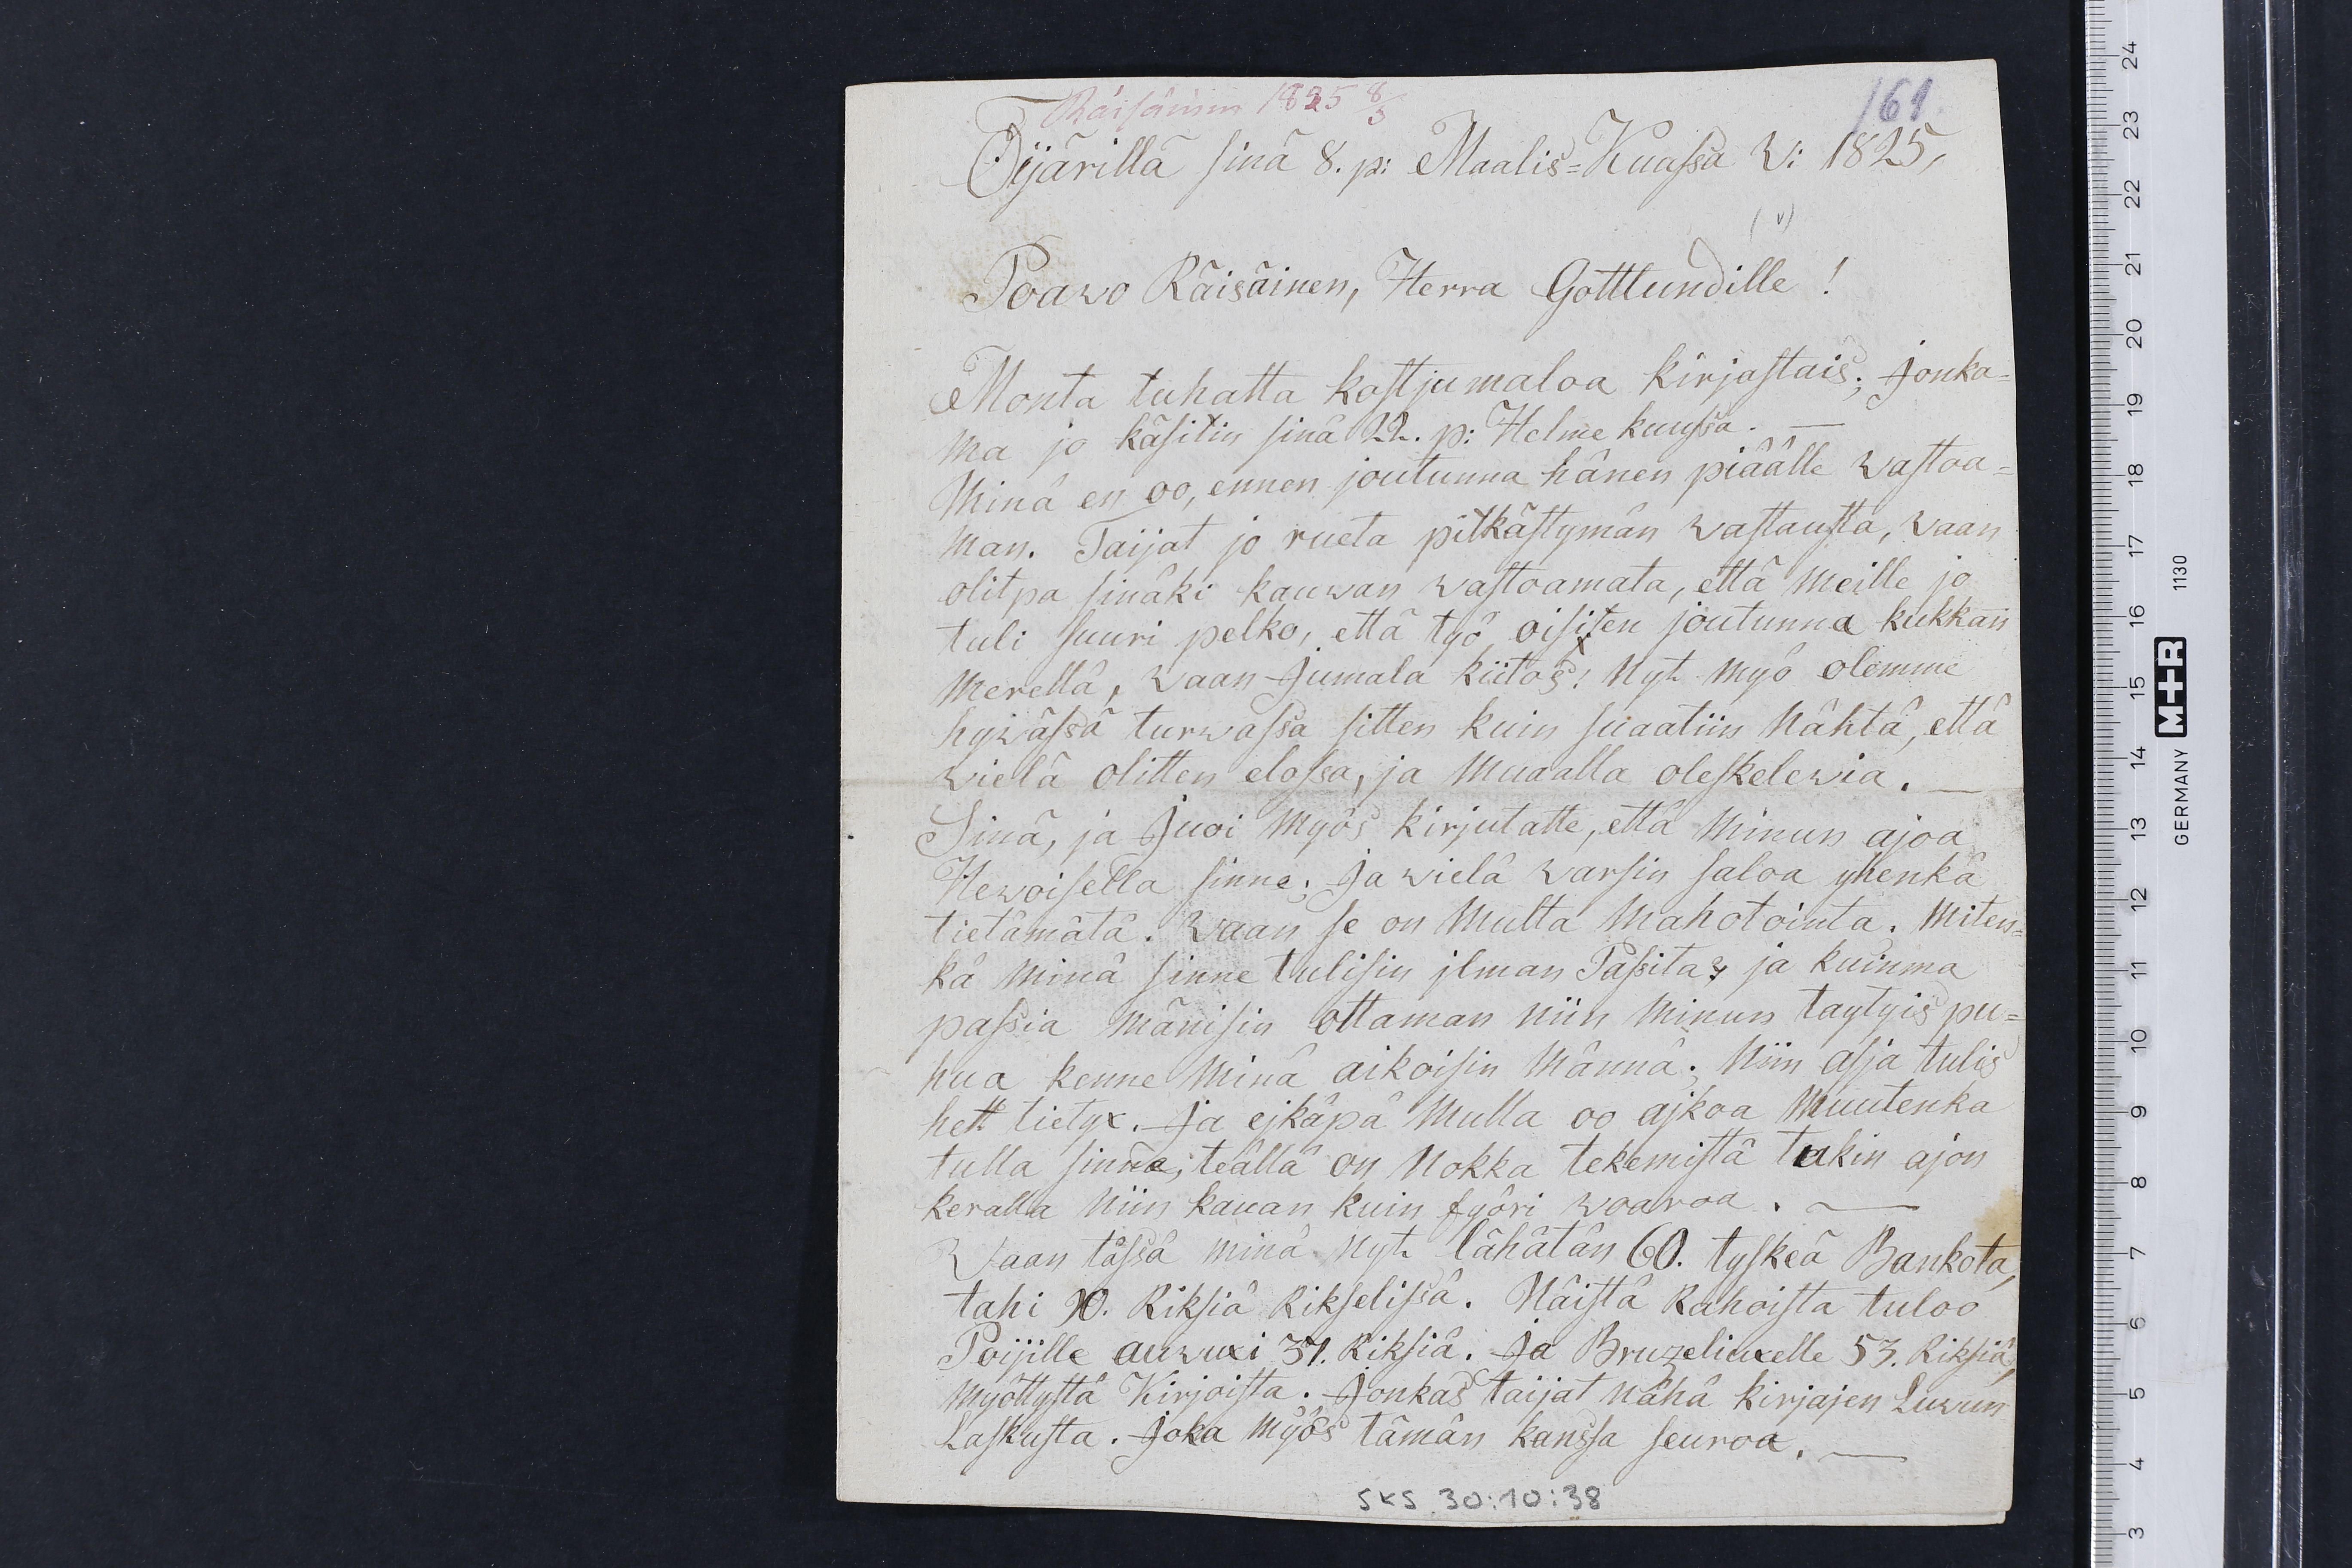 Räisäinen 1825 8/3
161
Öijärillä sinä 8. p: Maalis=Kuussa V: 1825,
(v)
Poavo Räisäinen, Herra Gottlundille!
Monta tuhatta kostjumaloa kirjastais; jonka=
ma jo käsitin sinä 22. p: Helme kuussa. —
Minä en oo, ennen joutunna hänen piäälle vastoa=
man. Taijat jo rueta pitkästymän vastausta, vaan
olitpa sinäki kauvan vastoamata, että meille jo
tuli suuri pelko, että työ oisiten joutunna kukkan
merellä, vaan Jumala kiitos! Nyt myö olemme
hyvässä turvassa sitten kuin suaatiin nähtä, että
vielä olitten elossa, ja muaalla oleskelevia. —
Sinä, ja Juoi myös kirjutatte, että minun ajoa
Hevoisella sinne; Ja vielä varsin saloa yhenkä
tietämätä. Vaan se on multa mahotointa. Miten=
kä minä sinne tulisin ilman Passita? ja kuinma
passia mänisin ottaman niin minun taytyis pu=
hua kenne minä aikoisin männä; Niin asja tulis
hett tietyx. Ja ejkäpä mulla oo ajkoa muutenka
tulla sinne; teällä on Nokka tekemistä tukin ajon
keralla niin kauan kuin fyöri voaroa. —
Vaan tässä minä nyt lähätän 60. tyskeä Bankota,
tahi 90. Riksiä Rikselissä. Näistä Rahoista tuloo
Poijille auvuxi 37. Riksiä. Ja Bruzeliuxelle 53. Riksiä,
myöttystä Kirjoista. Jonkas taijat nähä kirjajen Luvun
Laskusta. Joka myös tämän kanssa seuroa. —
SKS 30:10:38